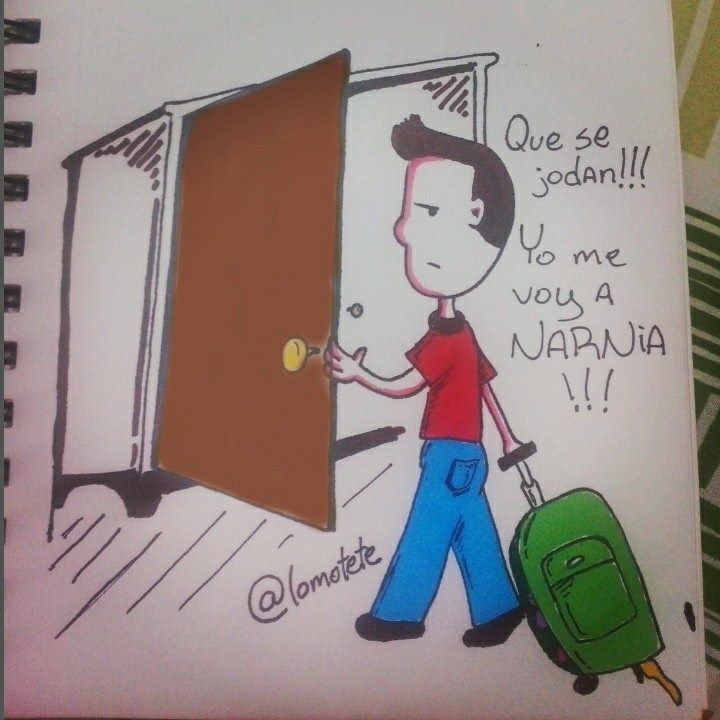 Que se
jodAn!!!
Yo me
voy A
NARNiA
!!!
@lomotete